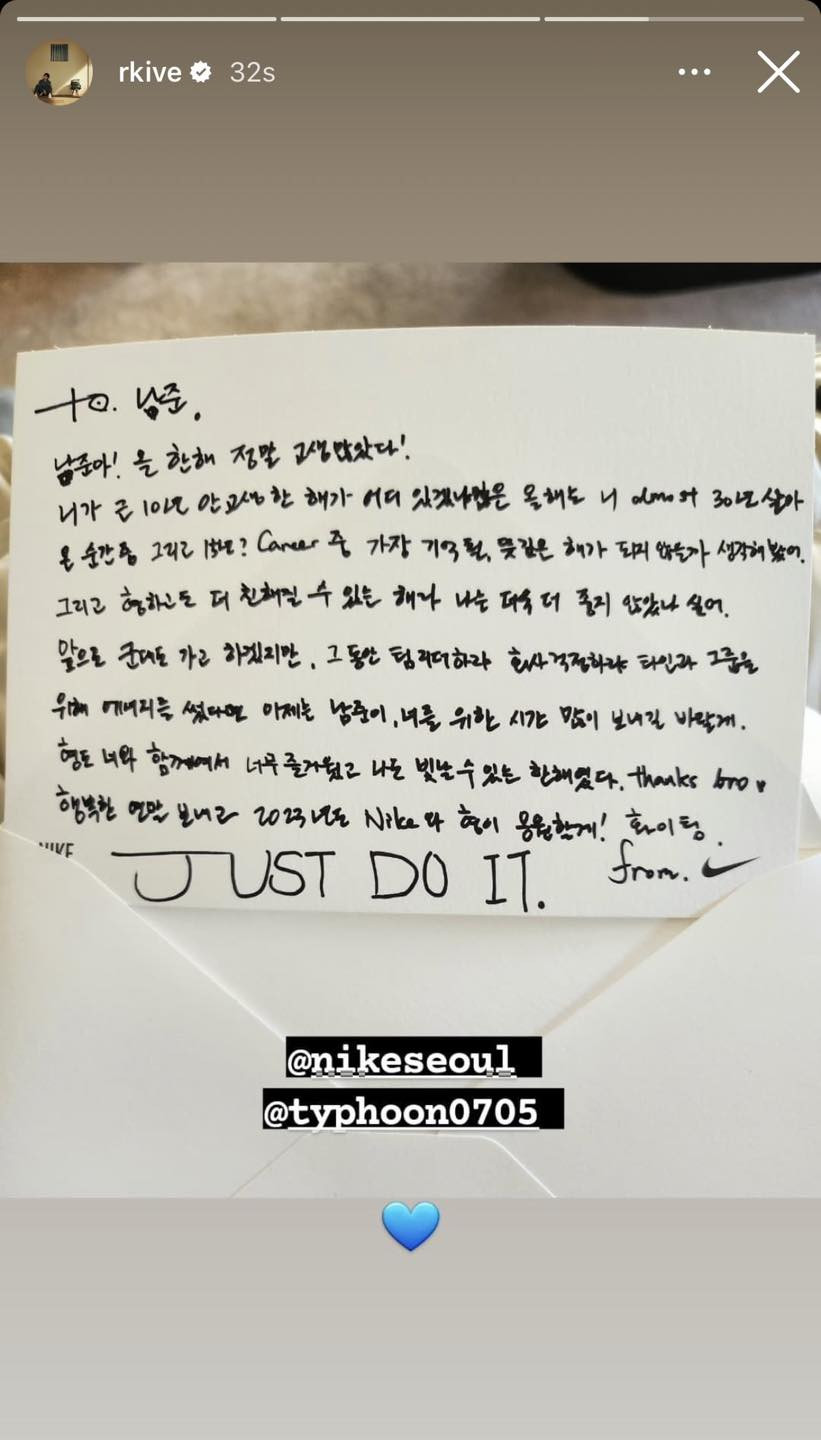 rkive 32s
To. 남준.
남준아! 올 한해 정말 고생많았다!
니가 근 10년 안고생한 해가 어디 있겠냐많은 올해는 니 almost 30년 살아
온 순간중 그리고 15년? Career 중 가장 기억될, 뜻깊은 해가 되지 않을까 생각해봤어.
그리고 형하고도 더 친해질 수 있는 해라 나는 더욱 더 좋지 않았나 싶어.
앞으로 군대도 가고 하겠지만, 그동안 팀리더하랴 회사걱정하랴 타인과 그룹을
위해 에너지를 썼다면 이제는 남준이, 너를 위한 시간 많이 보내길 바랄게.
형도 너와 함께여서 너무 즐거웠고 나도 빛날 수 있는 한해였다. thanks bro
행복한 연말 보내고 2023년도 Nike와 형이 응원할게! 화이팅.
NIKE
JUST DO IT. from.
@nikeseoul
@typhoon0705